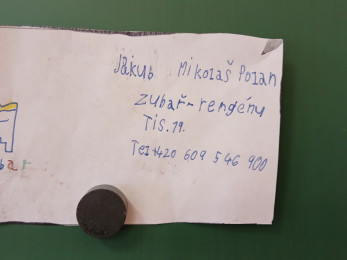 Jakub Mikolaš Polan
zubař-rengény
Tis.19.
Tel+420 609 546 900
bar